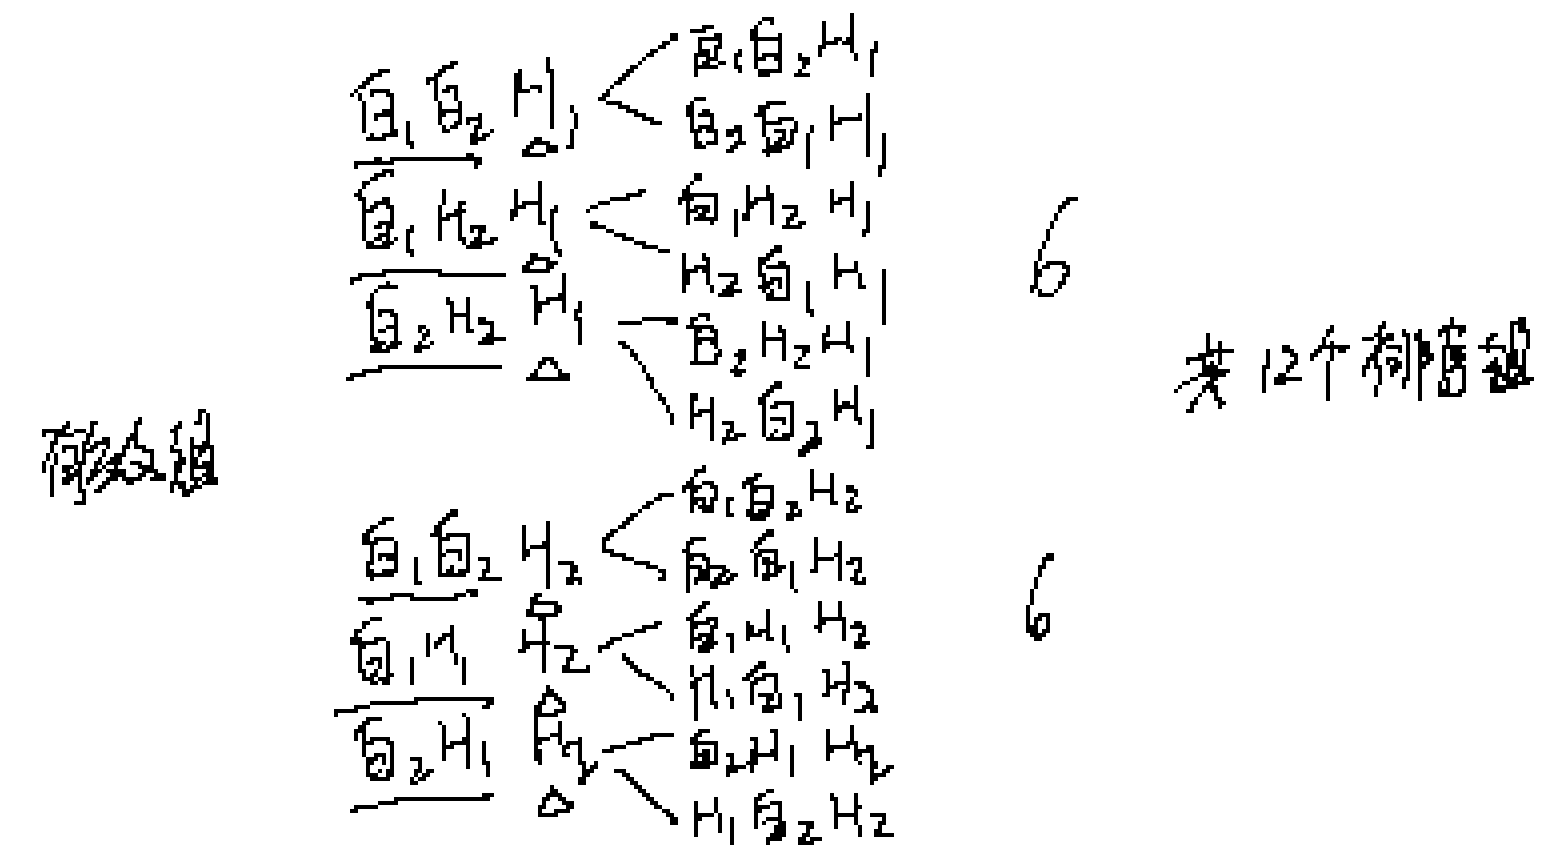 白₁白₂H₁
白₁白₂H₁
白₂白₁H₁
白₁H₂H₁
白₁H₂H₁
H₂白₁H₁
白₂H₂H₁
白₂H₂H₁
H₂白₂H₁
6
共12个排督组
有效组
白₁白₂H₂
白₁白₂H₂
白₂白₁H₂
白₁H₁H₂
白₁H₁H₂
H₁白₁H₂
白₂H₁H₂
白₂H₁H₂
H₁白₂H₂
6